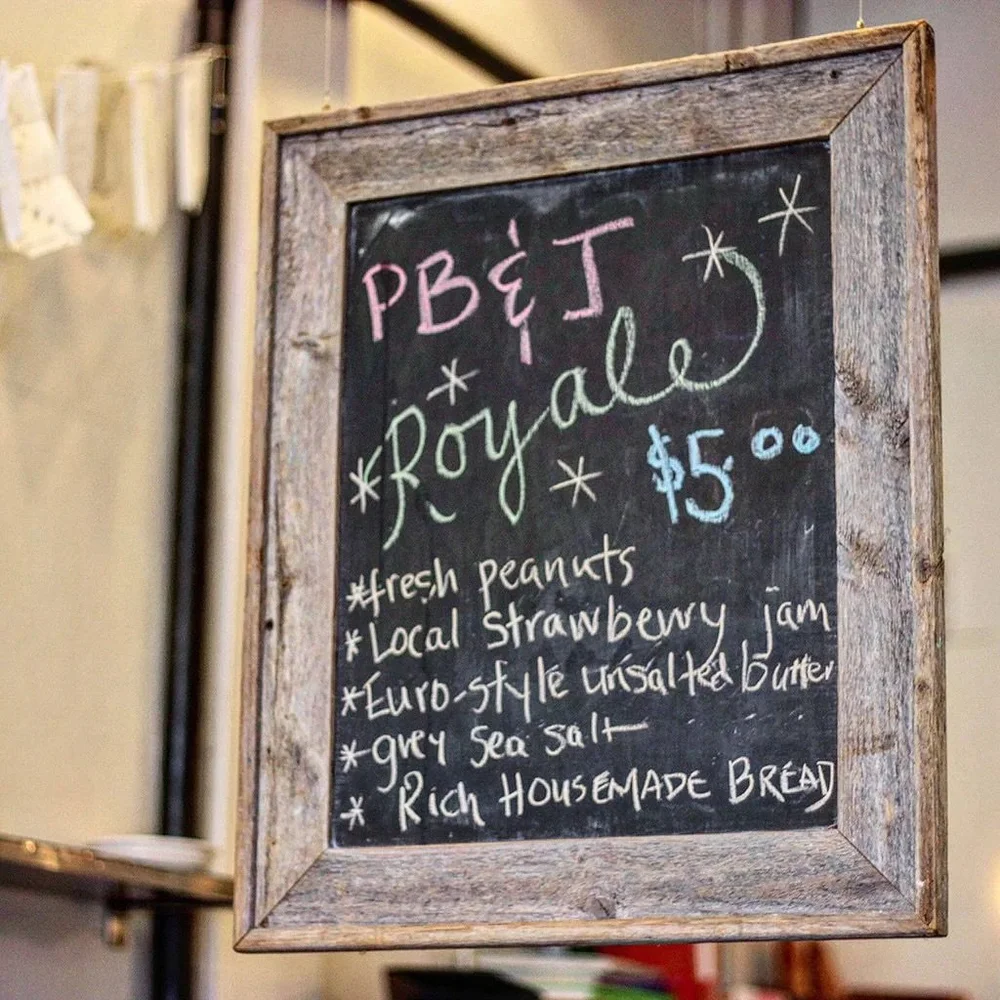 PB & J
Royale
$5.00
*fresh peanuts
*Local strawberry jam
*Euro-style unsalted butter
*grey sea salt
* Rich HOUSEMADE BREAD